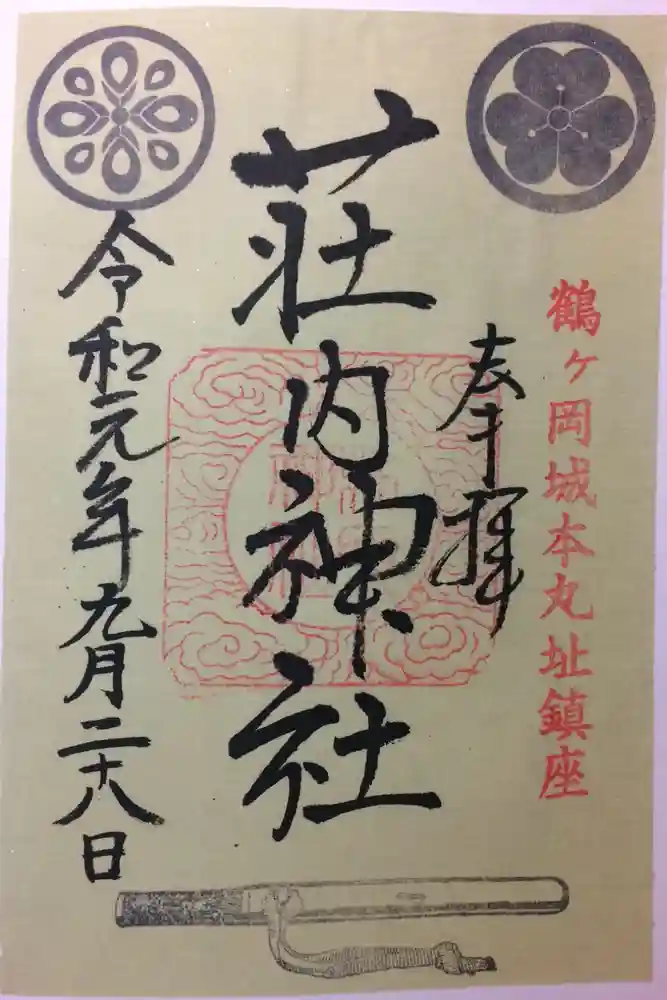 鶴ヶ岡城本丸址鎮座
奉拝
荘内神社
令和元年九月二十八日